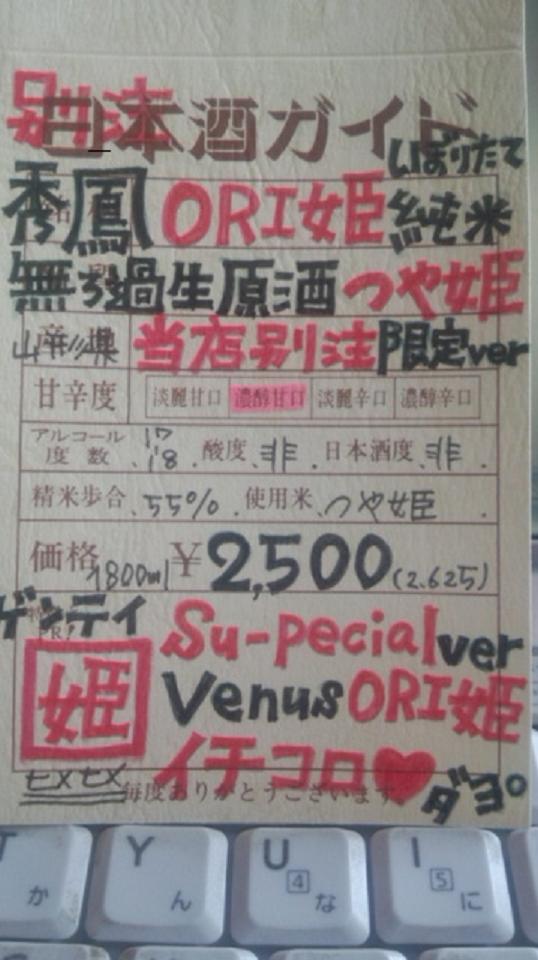 別注
日本酒ガイド
しぼりたて
秀鳳 ORI姫 純米
無ろ過生原酒 つや姫
産地
山形県 当店別注限定ver
甘辛度 淡麗甘口 濃醇甘口 淡麗辛口 濃醇辛口
アルコール度数 17 18 . 酸度 非 . 日本酒度 非 .
精米歩合 55% . 使用米 つや姫 .
価格 1800ml ¥2,500 (2.625)
ゲンテイ
PR!
姫
Su-pecial ver
Venus ORI姫
イチコロ♥ダヨ。
モエモエ
毎度ありがとうございます
T か Y ん U 4 な I 5 に